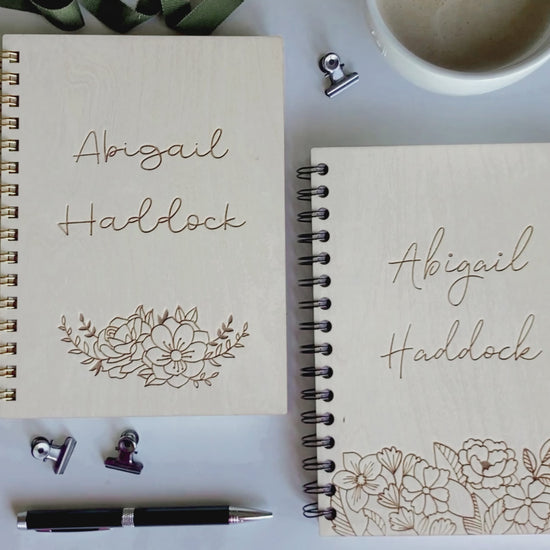 Abigail
Haddock
Abigail
Haddock